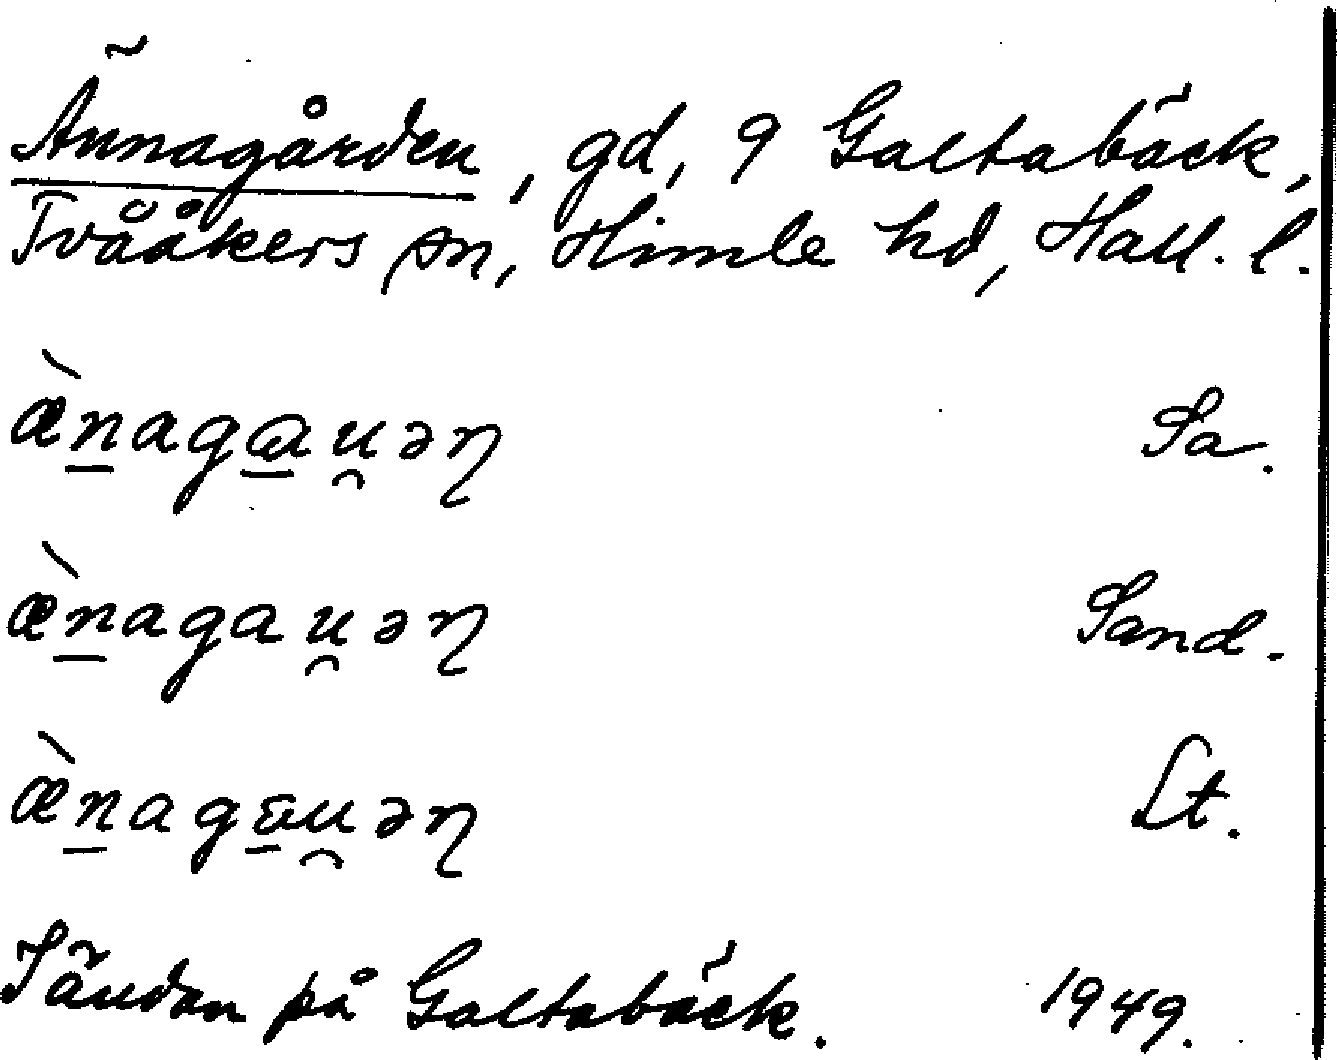 Ännagården, gd, 9 Galtabäck,
Tvååkers sn, Himle hd, Hall. l.
æ̀n̲agɑ̲u̯əɳ Sa.
æ̀n̲agau̯əɳ Sand.
æ̀n̲agʊ̲u̯əɳ Lt.
I ändan på Galtabäck. 1949.